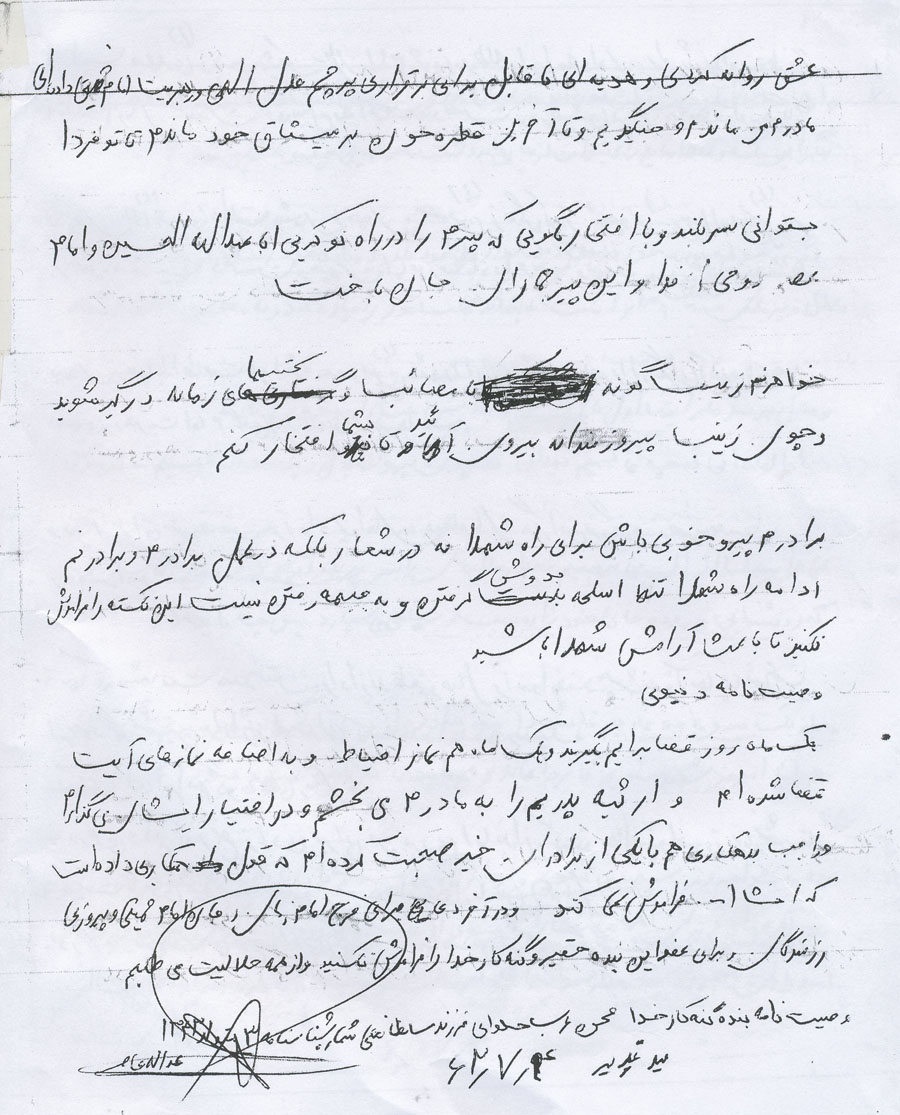 عشق روانه کردی و هدیه ای نا قابل برای برقراری پرچم عدل الهی ورهبریت امام خمینی داده ای
مادرم می مانم و میجنگیم و تا آخرین قطره خون بر میثاق خود ماندم تا تو فردا
بتوانی سربلند و با افتخار بگویی که پسرم را در راه نوکری ابا عبدالله الحسین و امام
عصر روحی فدا و این پیر جماران جان باخت
خواهرم زینب گونه با مصائب و سختیهای زمانه درگیر شوید
و چون زینب پیروزمندانه بیرون آئید تا بشما افتخار کنم
برادرم پیرو خوبی باش برای راه شهدا نه در شعار بلکه در عمل برادرم و برادرنم
ادامه راه شهدا تنها اسلحه بدوش گرفتن و به جبهه رفتن نیست این نکته را فراموش
نکنید تا باعث آرامش شهدا باشید
وصیت نامه دنیوی
یک ماه روزه قضا برایم بگیرید و یک ماه هم نماز احتیاط و به اضافه نمازهای آیت
قضا شده ام و ارثیه پدریم را به مادرم می بخشم و در اختیار ایشان می گذارم
و با یکی از برادران خیر صحبت کرده ام که قول همکاری داده است
که انشاا... فراموش نمی کند و در آخر دعای برای فرج امام زمان و امام خمینی و پیروزی
رزمندگان و برای عفو این بنده حقیر و گنه کار خدا را فراموش نکنید و از همه حلالیت می طلبم
وصیت نامه بنده گنه کار خدا محسن فرزند سلطانعلی شماره شناسنامه